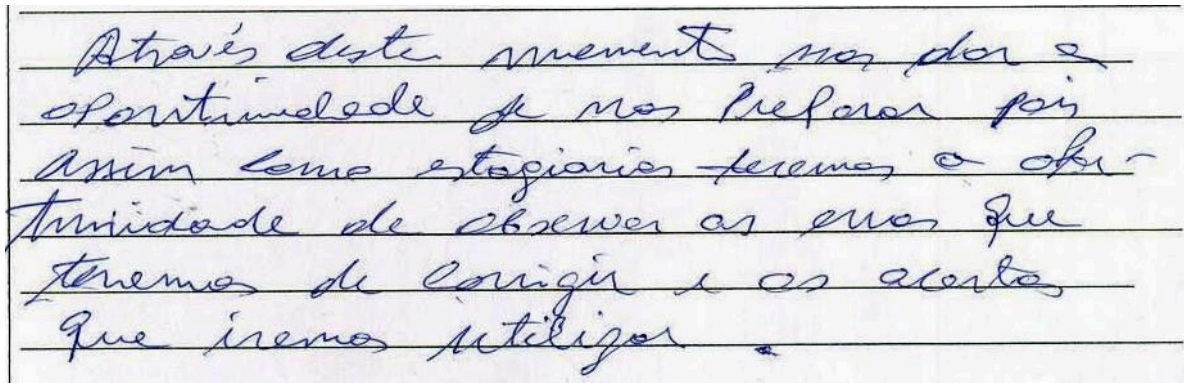 Através deste momento nos dar a
oportunidade de nos Preparar pois
assim como estagiarios teremos a opor-
tunidade de observar os erros que
teremos de corrigir e os acertos
que iremos utilizar.